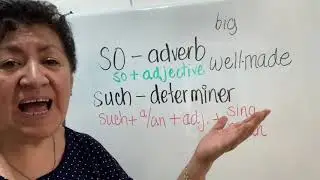 big
SO - adverb
so + adjective well-made
such - determiner
such + a/an + adj. + sing